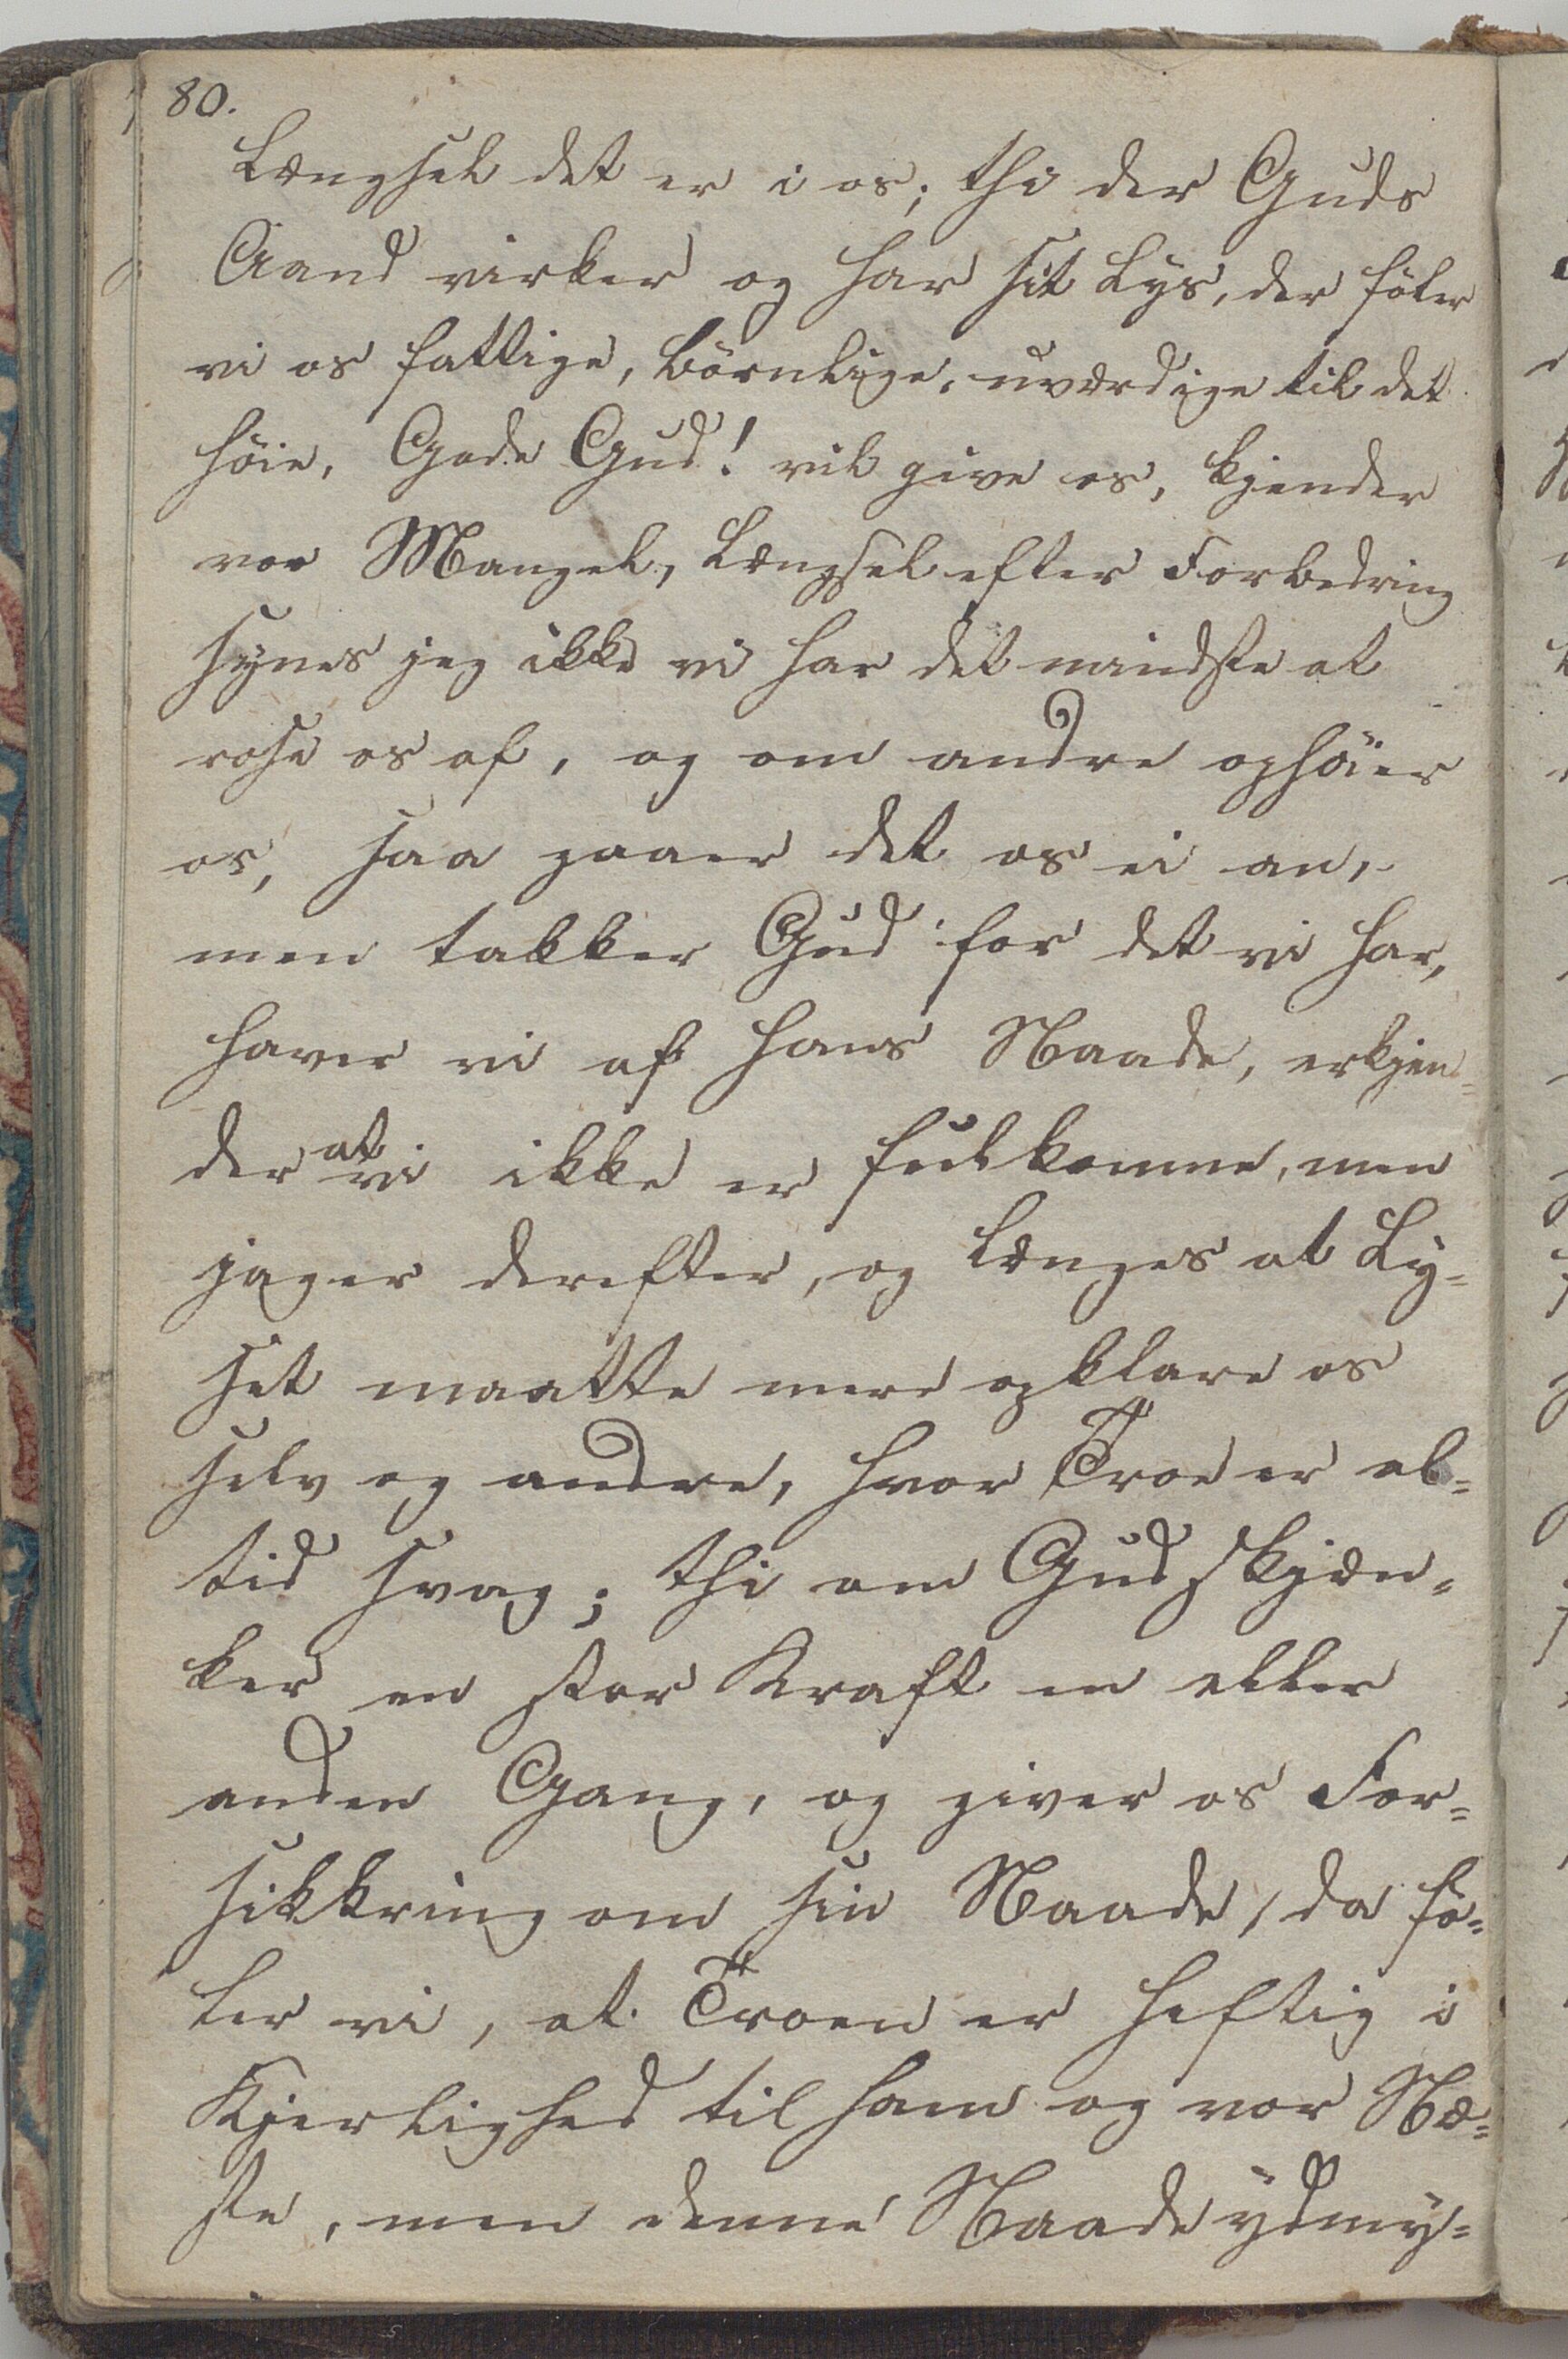 80.
Længsel det er i os; thi der Guds
Aand virker og har sit Lys, der föler
vi os fattige, börnlige, uværdige til det
höie, Gode Gud! vil give os, kjender
vor Mangel, Længsel efter Forbedring
synes jeg ikke vi har det mindste at
rose os af, og om andre ophöier
os, saa gaaer det os ei an,
men takker Gud for det vi har,
haver vi af hans Naade, erkjen-
der at vi ikke er fuldkomne, men
jager derefter, og længes at Ly-
set maatte mere opklare os
selv og andre, hvor Troe er al-
tid svag; thi om Gud skjæn-
ker en stor Kraft en eller
anden Gang, og giver os For-
sikkring om sin Naade, da fö-
ler vi, at Troen er heftig i
Kjerlighed til ham og vor Næ-
ste, men denne Naade ydmy-